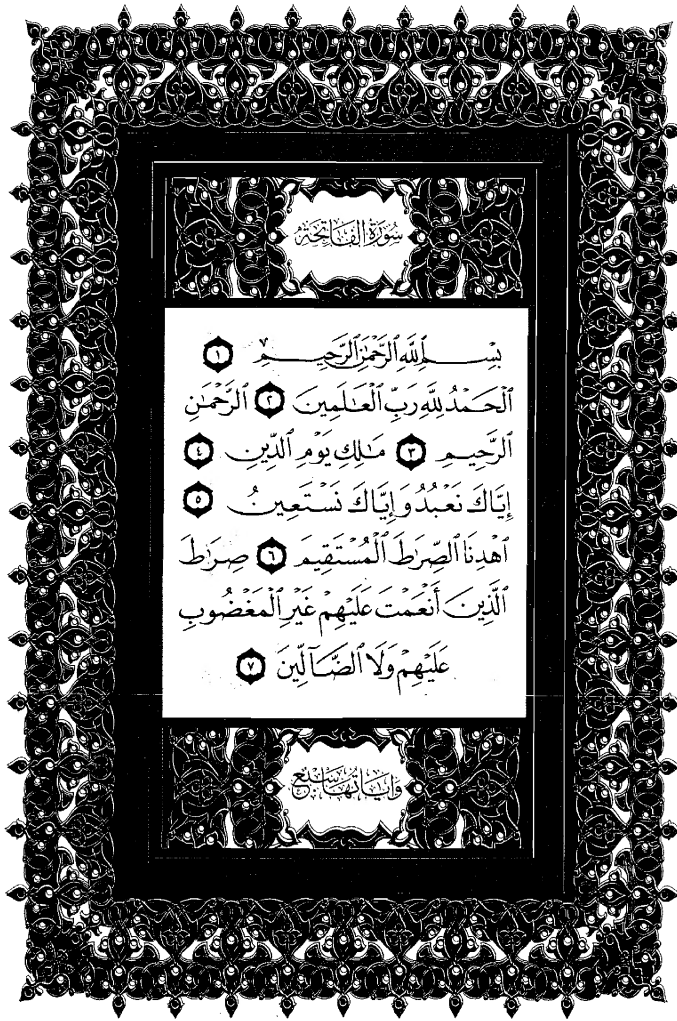 سُورَةُ الفَاتِحَةِ
بِسْمِ اللَّهِ الرَّحْمَٰنِ الرَّحِيمِ ١
الْحَمْدُ لِلَّهِ رَبِّ الْعَالَمِينَ ٢ الرَّحْمَٰنِ
الرَّحِيمِ ٣ مَالِكِ يَوْمِ الدِّينِ ٤
إِيَّاكَ نَعْبُدُ وَإِيَّاكَ نَسْتَعِينُ ٥
اهْدِنَا الصِّرَاطَ الْمُسْتَقِيمَ ٦ صِرَاطَ
الَّذِينَ أَنْعَمْتَ عَلَيْهِمْ غَيْرِ الْمَغْضُوبِ
عَلَيْهِمْ وَلَا الضَّآلِّينَ ٧
وَآيَاتُهَا سَبْعٌ